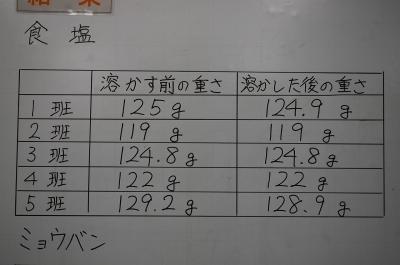 結果
食塩
溶かす前の重さ 溶かした後の重さ
1班 125g 124.9g
2班 119g 119g
3班 124.8g 124.8g
4班 122g 122g
5班 129.2g 128.9g
ミョウバン